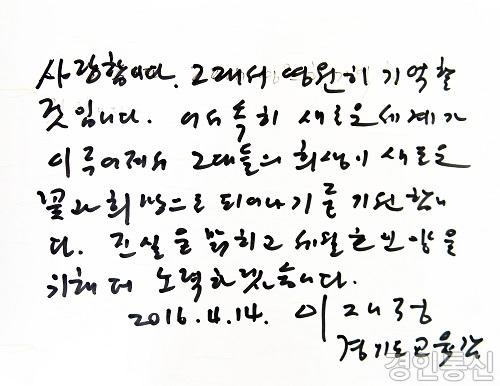 사랑합니다. 그래서 영원히 기억할
것입니다. 어서 속히 새로운 세계가
이룩어져서 그대들의 희생이 새로운
꽃과 희망으로 피어나기를 기원합니
다. 진실을 밝히고 세월호 인양을
위해 더 노력하겠습니다.
2016.4.14. 이재정
경기도교육감
경인통신